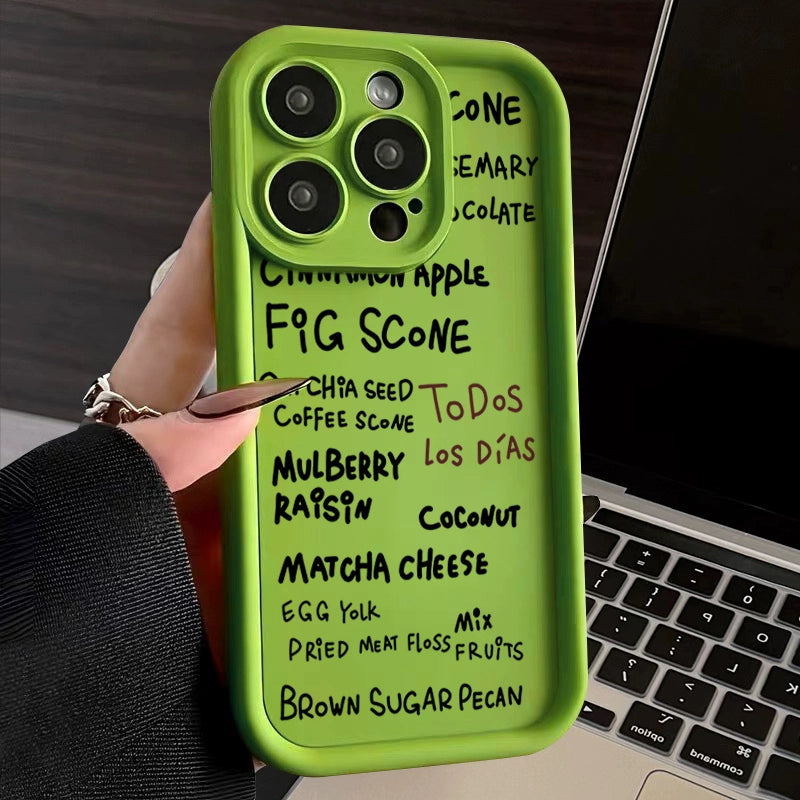 CONE
SEMARY
OCOLATE
CINNAMON APPLE
FiG SCONE
CHiA SEED
COFFEE SCONE
ToDOS
LOS DÍAS
MULBERRY
RAiSiN
COCONUT
MATCHA CHEESE
EGG YOLK
MiX
DRiED MEAT FLOSS
FRUiTS
BROWN SUGAR PECAN
option
command